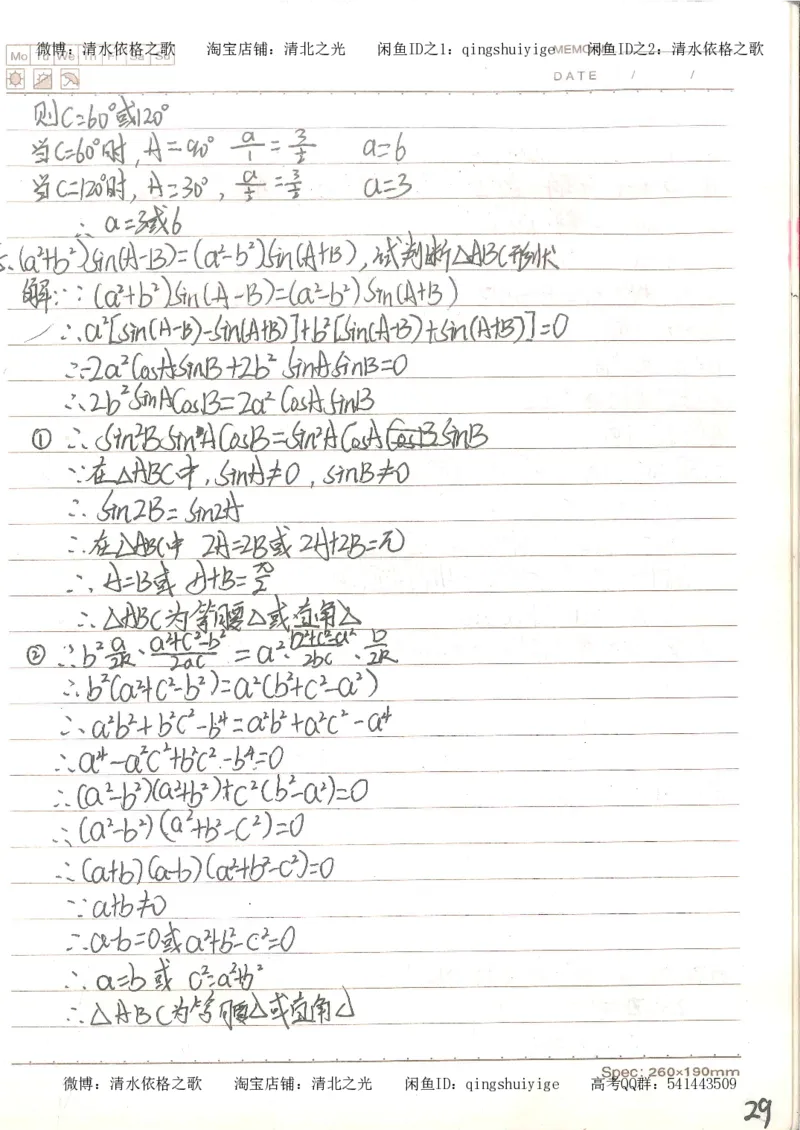 微博：清水依格之歌 淘宝店铺：清北之光 闲鱼ID之1：qingshuiyige 闲鱼ID之2：清水依格之歌
Mo Tu We Th Fr Sa Su
MEMO
DATE / /
则C=60°或120°
当C=60°时，A=90° a/1 = 3/½ a=6
当C=120°时，A=30°，a/½ = 3/½ a=3
∴ a=3或6
5、(a²+b²)Sin(A-B)=(a²-b²)Sin(A+B)，试判断△ABC形状
解：∵(a²+b²)Sin(A-B)=(a²-b²)Sin(A+B)
∴a²[Sin(A-B)-Sin(A+B)]+b²[Sin(A-B)+Sin(A+B)]=0
∴-2a²CosASinB+2b² SinASinB=0
∴2b²SinACosB=2a²CosASinB
① ∴Sin²BSinACosB=Sin²ACosACosBSinB
∵在△ABC中，SinA≠0，sinB≠0
∴ Sin2B=Sin2A
∴在△ABC中 2A=2B或 2A+2B=π
∴A=B或 A+B=π/2
∴△ABC为等腰△或直角△
② ∴b² a/2R · (a²+c²-b²)/2ac = a² · (b²+c²-a²)/2bc · b/2R
∴b²(a²+c²-b²)=a²(b²+c²-a²)
∴a²b²+b²c²-b⁴=a²b²+a²c²-a⁴
∴a⁴-a²c²+b²c²-b⁴=0
∴(a²-b²)(a²+b²)+c²(b²-a²)=0
∴(a²-b²)(a²+b²-c²)=0
∴(a+b)(a-b)(a²+b²-c²)=0
∵a+b≠0
∴a-b=0或a²+b²-c²=0
∴a=b或 c²=a²+b²
∴△ABC为等腰△或直角△
Spec: 260×190mm
微博：清水依格之歌 淘宝店铺：清北之光 闲鱼ID：qingshuiyige 高考QQ群：541443509
29